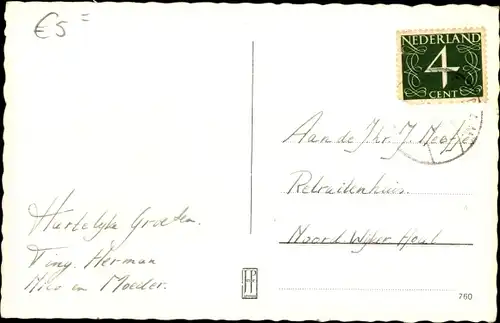 €5=
NEDERLAND
4
CENT
Aan de Hr. J.
Retraitenhuis.
Noord-Wijker Hout
Hartelijke Groeten.
Tiny. Herman
Nico en Moeder.
760